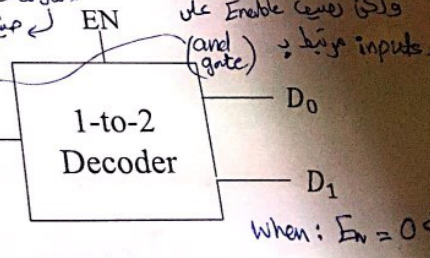 ولكن Enable على
EN
(and gate) مرتبط بـ inputs
1-to-2
Decoder
D₀
D₁
when: EN = 0